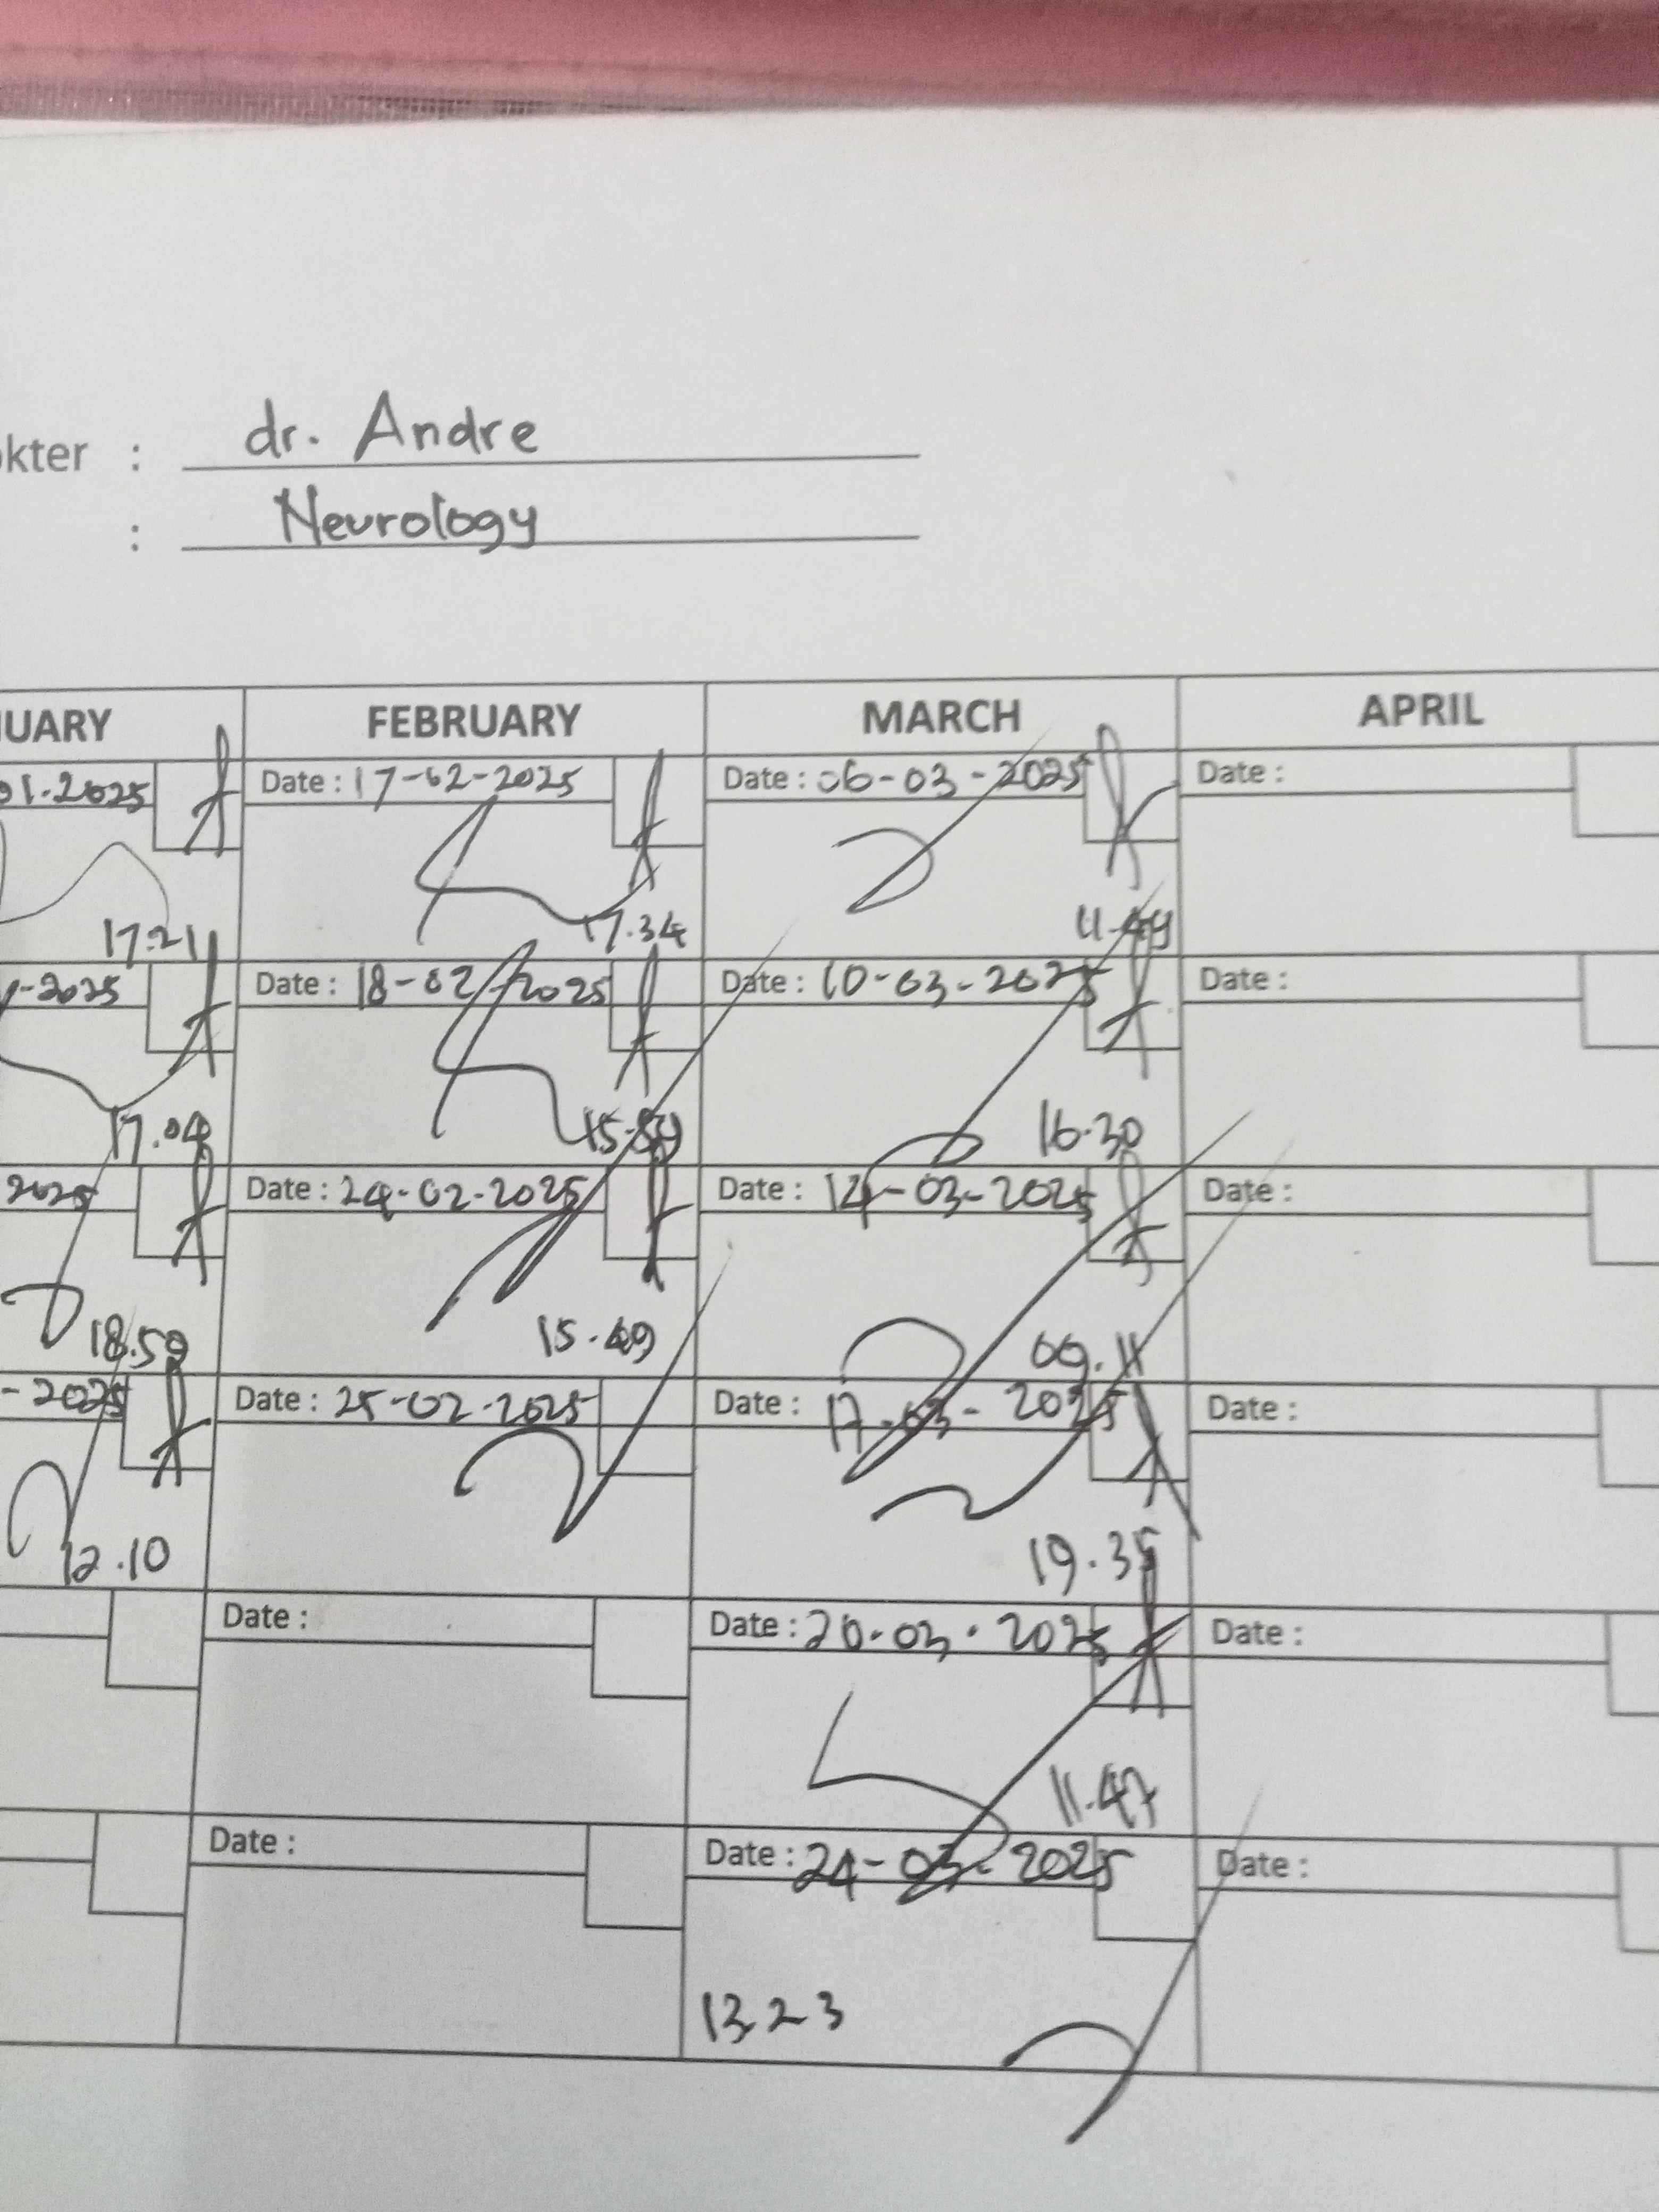 dr. Andre
kter :
Neurology
:
UARY FEBRUARY MARCH APRIL
01.2025 Date : 17-02-2025 Date : 06-03-2025 Date :
17.21 17.34 11.49
-2025 Date : 18-02-2025 Date : 10-03-2025 Date :
17.04 15.59 16.30
2025 Date : 24-02-2025 Date : 14-03-2025 Date :
18.59 15.49 09.11
-2025 Date : 25-02-2025 Date : 17-03-2025 Date :
12.10 19.35
Date : Date : 20.03.2025 Date :
11.47
Date : Date : 24-03-2025 Date :
13.23